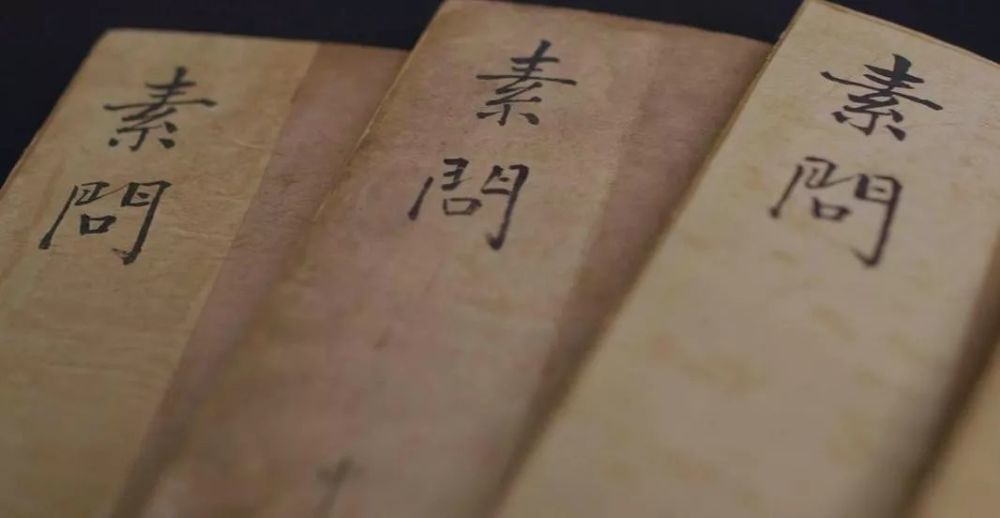 素問
素問
素問